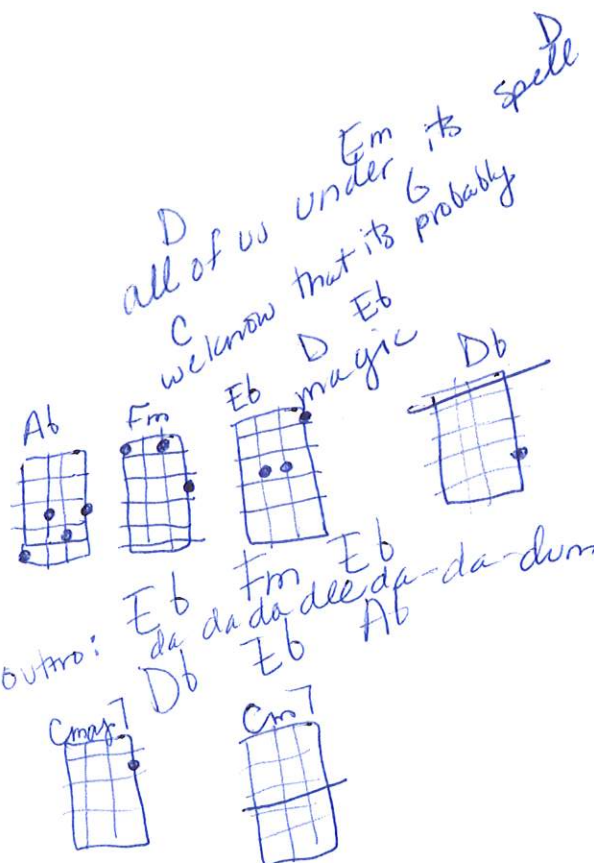 D Em D
all of us under its spell
C G
we know that its probably
D Eb
magic
Ab Fm Eb Db
Eb Fm Eb
outro: da da da dee da-da-dum
Db Eb Ab
Cmaj7 Cm7